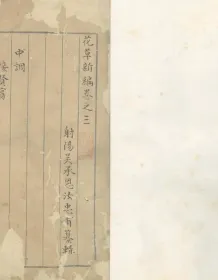 花草新編卷之三
射陽吳承恩汝忠甫纂輯
中調
接賢賓